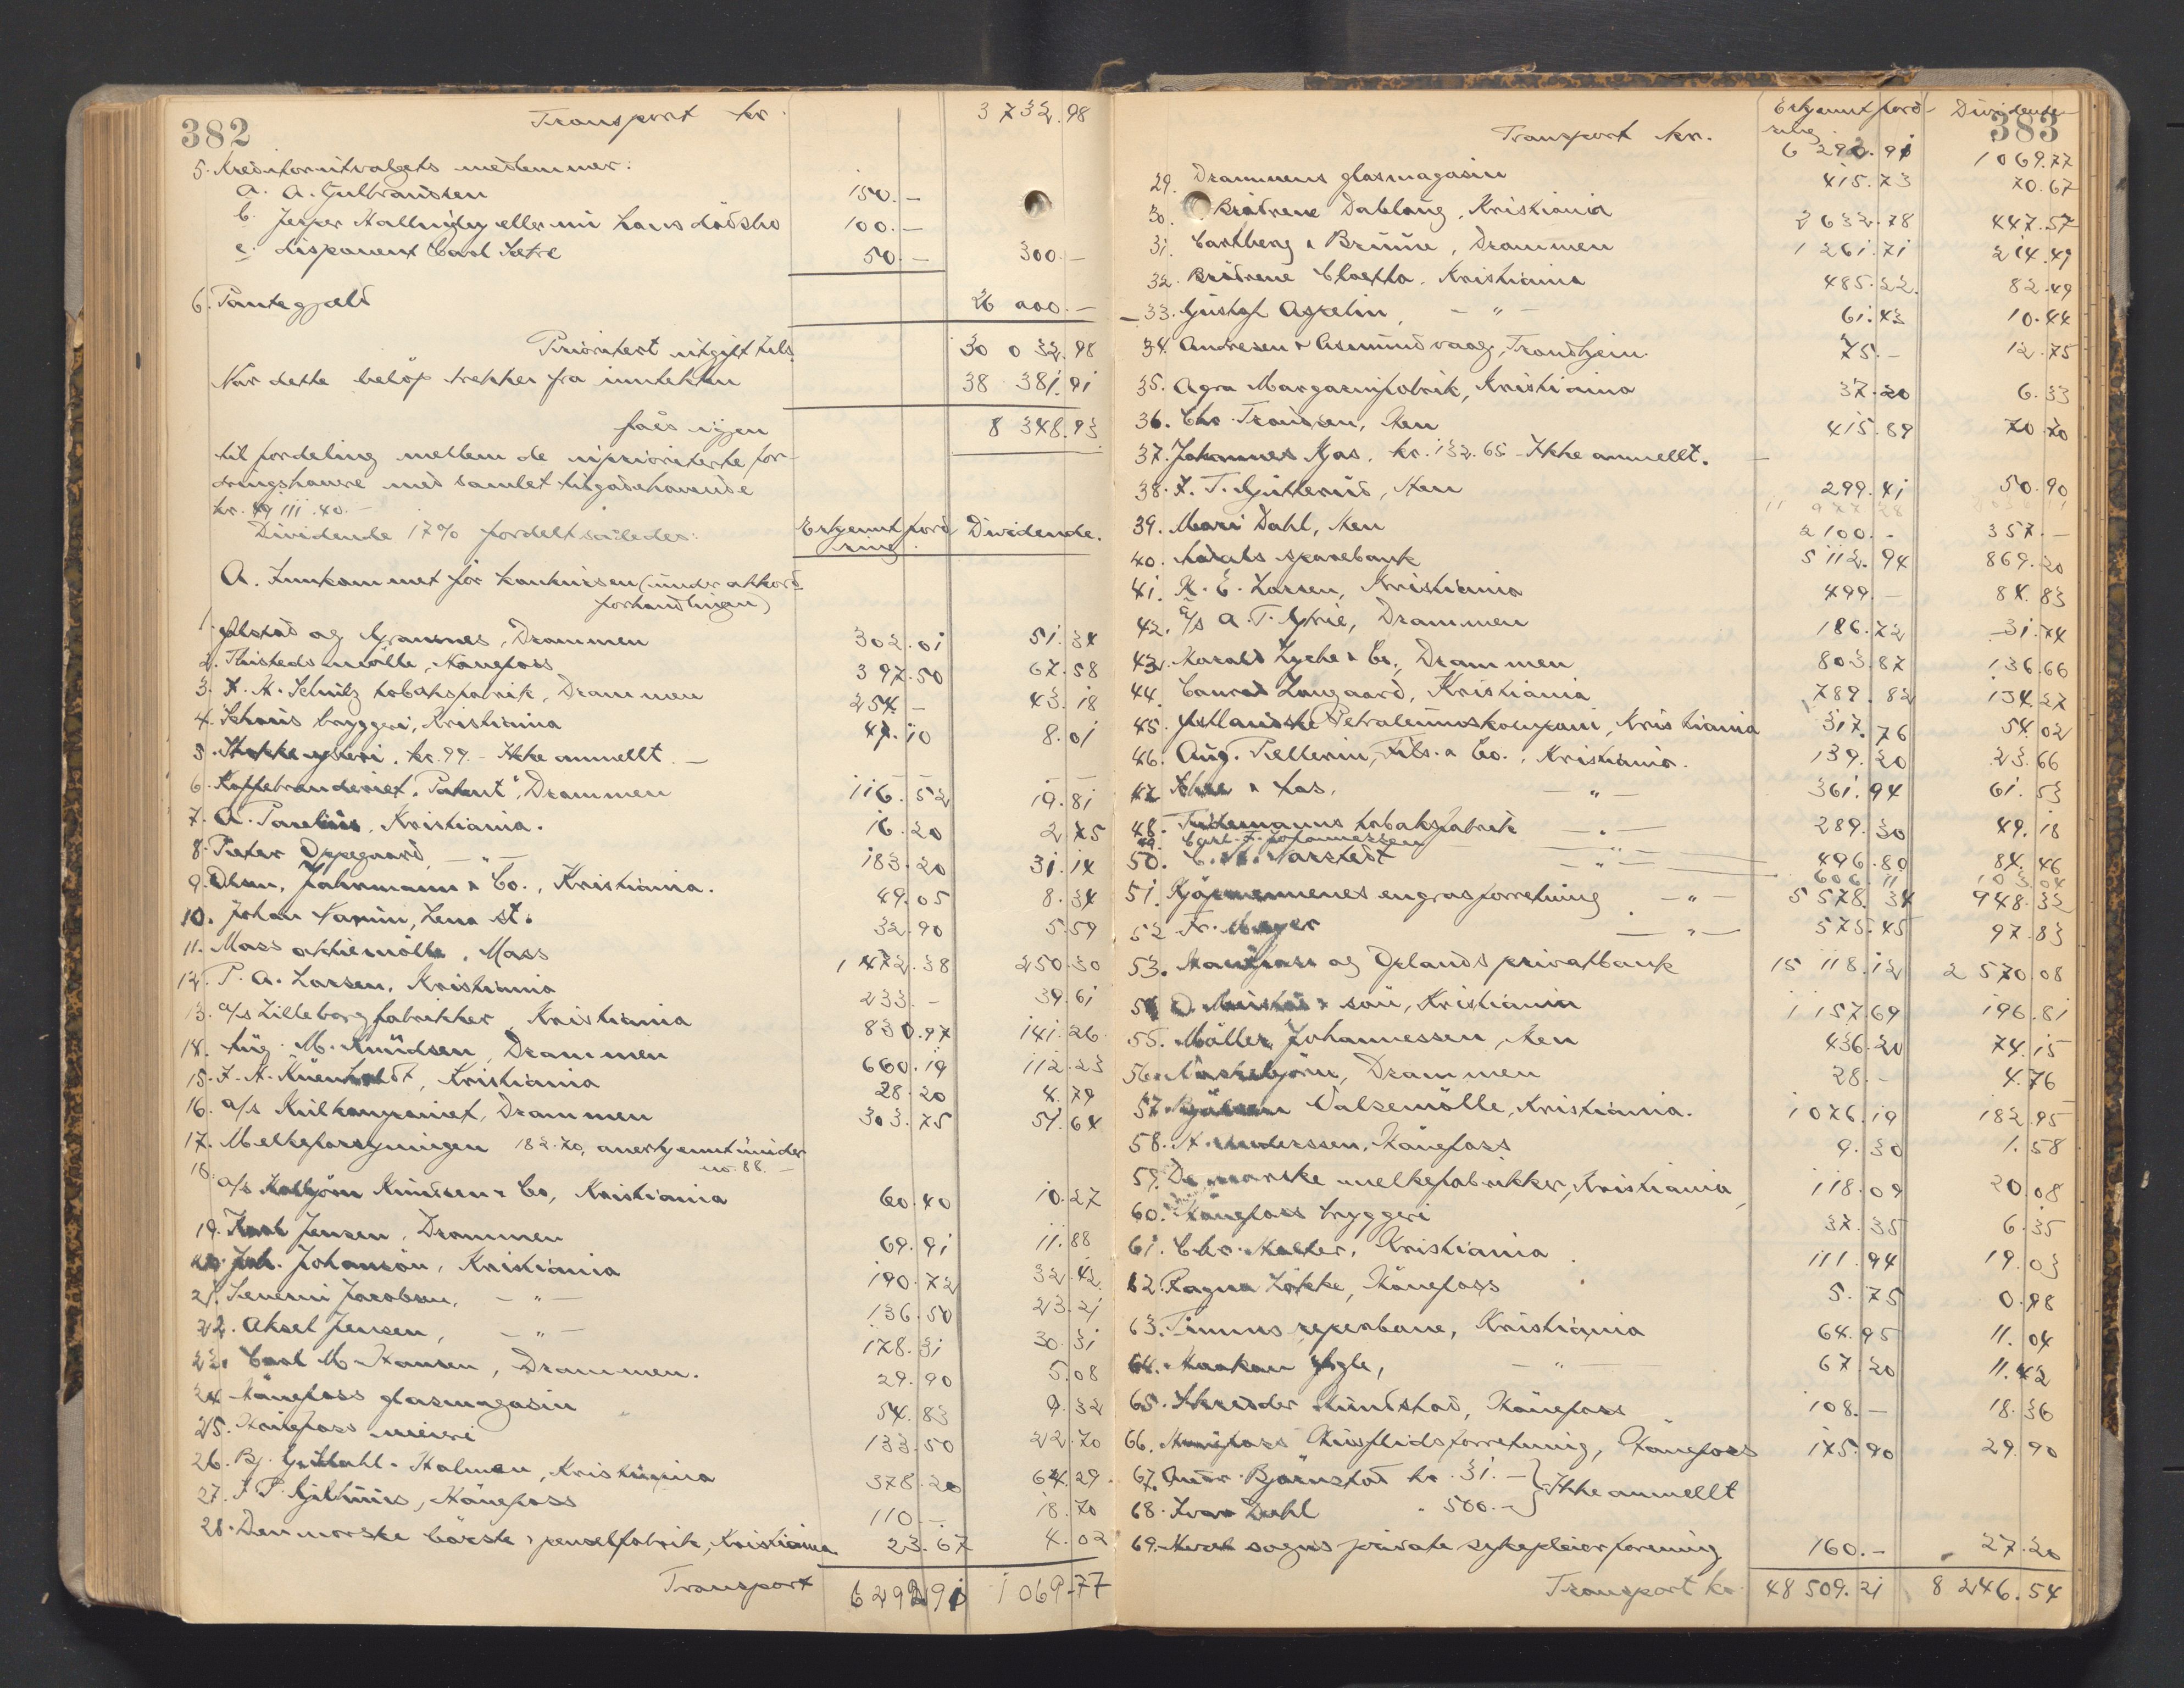 382
Transport kr.
3 732.98
5. Kreditorutvalgets medlemmer:
a. A. Gulbrandsen 150.-
b. Jesper Hallingby eller nu hans dödsbo 100.-
c. disponent Carl Sætre 50.- 300.-
6. Pantegjeld 26 000.-
Prioritert utgift tils. 30 032.98
Når dette belöp trekkes fra inntekten 38 381.91
fåes igjen 8 348.93
til fordeling mellem de uprioriterte for-
dringshavere med samlet tilgodehavende
kr. 49 111.40.-
Dividende 17% fordelt således:
Erkjennt ford
ring. Dividende.
A. Innkommet för konkursen (under akkord-
forhandlingen)
1. og Grannes, Drammen 302.01 51.34
2. Thisteds mölle, Hönefoss 397.50 67.58
3. H. Schultz tobaksfabrik, Drammen 254.- 43.18
4. Schous bryggeri, Kristiania 47.10 8.01
5. ysteri. kr. 99.- Ikke anmellt. -
6. Kaffebrenderiet "Patent", Drammen 116.52 19.81
7. A. Kristiania. 16.20 2.75
8. Peter Oppegaard -"- 183.20 31.14
9. Olsen, Jahrmann & Co., Kristiania. 49.05 8.34
10. Johan Lena st. 32.90 5.59
11. Mass aktiemölle, Mass 1 472.38 250.30
12. P. A. Larsen, Kristiania 233.- 39.61
13. a/s Lilleborg fabrikker, Kristiania 830.97 141.26
14. Aug. M. Knudsen, Drammen 660.19 112.23
15. Kristiania 28.20 4.79
16. a/s Kulkompaniet, Drammen 303.75 51.64
17. Melkeforsyningen 182.70, anerkjennt under
no. 88. -
18. a/s Kolbjörn Knudsen & Co, Kristiania 60.40 10.27
19. Jensen, Drammen 69.91 11.88
20. Joh. Johanson, Kristiania 190.72 32.42
21. Jacobsen, -"- 136.50 23.21
22. Aksel Jensen, -"- 178.31 30.31
23. Carl M. Hansen, Drammen. 29.90 5.08
24. Hönefoss glasmagasin 54.83 9.32
25. Hönefoss meieri 133.50 22.70
26. Bj. Kristiania 378.20 64.29
27. Hönefoss 110.- 18.70
28. Den norske börste & penselfabrik, Kristiania 23.67 4.02
Transport 6 292.91 1 069.77
383
Erkjennt ford-
ring. Dividende
Transport kr. 6 292.91 1069.77
29. Drammens glasmagasin 415.73 70.67
30. Brödrene Dablang, Kristiania 2 632.78 447.57
31. Carlberg & Bruun, Drammen 1 261.71 214.49
32. Brödrene Cloetta, Kristiania 485.22 82.49
33. Gustaf Aspelin, -"- 61.43 10.44
34. Andresen & Asmundvaag, Trondhjem. 75.- 12.75
35. Agra Margarinfabrik, Kristiania 37.20 6.33
36. Chr. Trondsen, Hen 415.89 70.70
37. Johannes Moe. kr. 132.65 - Ikke anmellt. -
38. Hen 299.41 50.90
39. Mari Dahl, Hen 2 100.- 357.-
40. sparebank 5 112.94 869.20
41. K. E. Larsen, Kristiania 499.- 84.83
42. a/s A. T. Drammen 186.72 31.74
43. Harald Lyche & Co., Drammen 803.87 136.66
44. Conrad Langaard, Kristiania 789.82 134.27
45. Östlandske Petroleumskompani, Kristiania 317.76 54.02
46. Aug. Pellerin, Fils. & Co., Kristiania. 139.20 23.66
47. & -"- 361.94 61.53
48. Tiedemanns tobaksfabrik -"- 289.30 49.18
49. Carl. F. Johannessen
50. -"- 496.80 84.46
606.11 103.04
51. Kjöpmennenes engrosforretning -"- 5 578.34 948.32
52. Fr. Meyer -"- 575.45 97.83
53. Hönefoss og Oplands privatbank 15 118.12 2 570.08
54. O. Mustad & sön, Kristiania 1 157.69 196.81
55. Möller Johannessen, Hen 436.20 74.15
56. Drammen 28.- 4.76
57. Valsemölle, Kristiania. 1 076.19 182.95
58. Anderssen, Hönefoss 9.30 1.58
59. De norske melkefabrikker, Kristiania, 118.09 20.08
60. Hönefoss bryggeri 37.35 6.35
61. Chr. Kristiania 111.94 19.03
62. Ragna Lökke, Hönefoss 5.75 0.98
63. Timms reperbane, Kristiania 64.95 11.04
64. Haakon -"- 67.20 11.42
65. Skredder Hönefoss 108.- 18.36
66. Hönefoss Husflidsforretning, Hönefoss 175.90 29.90
67. Björnstad kr. 31.- } Ikke anmellt
68. Ivar Dahl " 500.- }
69. sogns private sykepleierforening 160.- 27.20
Transport kr. 48 509.21 8 246.54